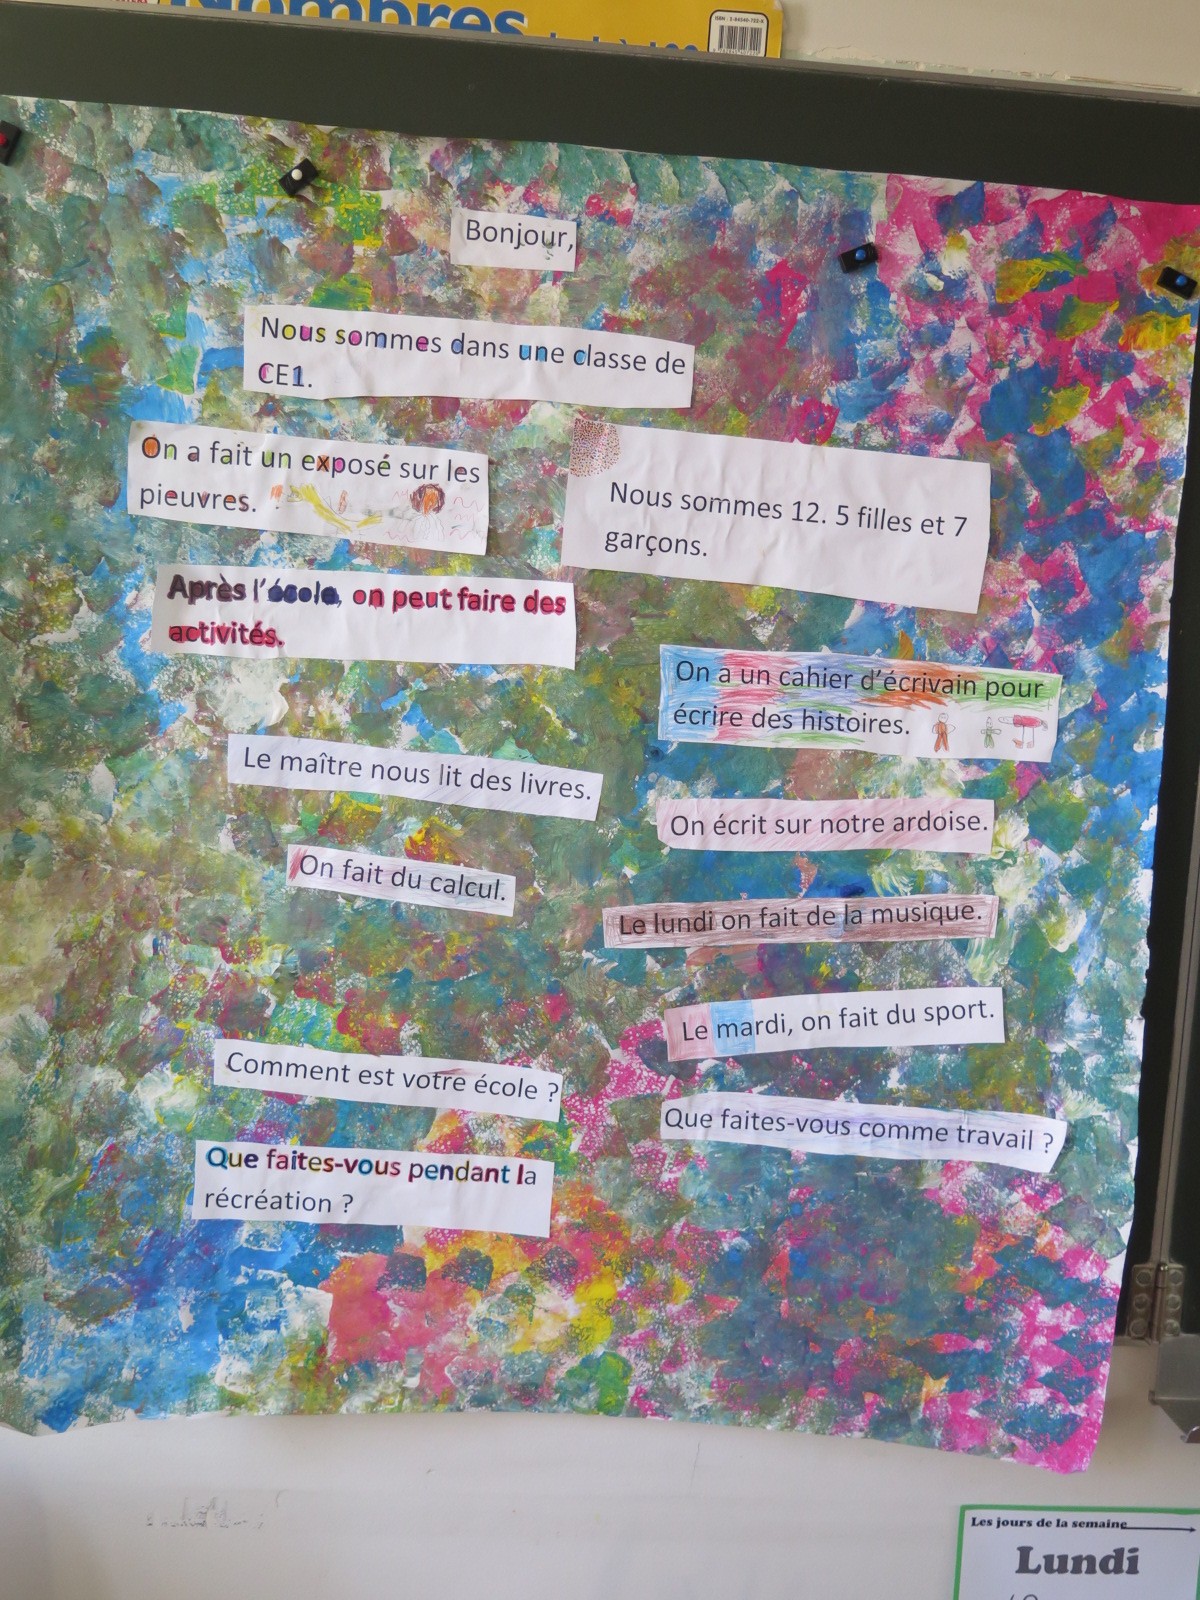 Nombres
Bonjour,
Nous sommes dans une classe de
CE1.
On a fait un exposé sur les
pieuvres.
Nous sommes 12. 5 filles et 7
garçons.
Après l'école, on peut faire des
activités.
On a un cahier d'écrivain pour
écrire des histoires.
Le maître nous lit des livres.
On écrit sur notre ardoise.
On fait du calcul.
Le lundi on fait de la musique.
Le mardi, on fait du sport.
Comment est votre école ?
Que faites-vous comme travail ?
Que faites-vous pendant la
récréation ?
Les jours de la semaine
Lundi